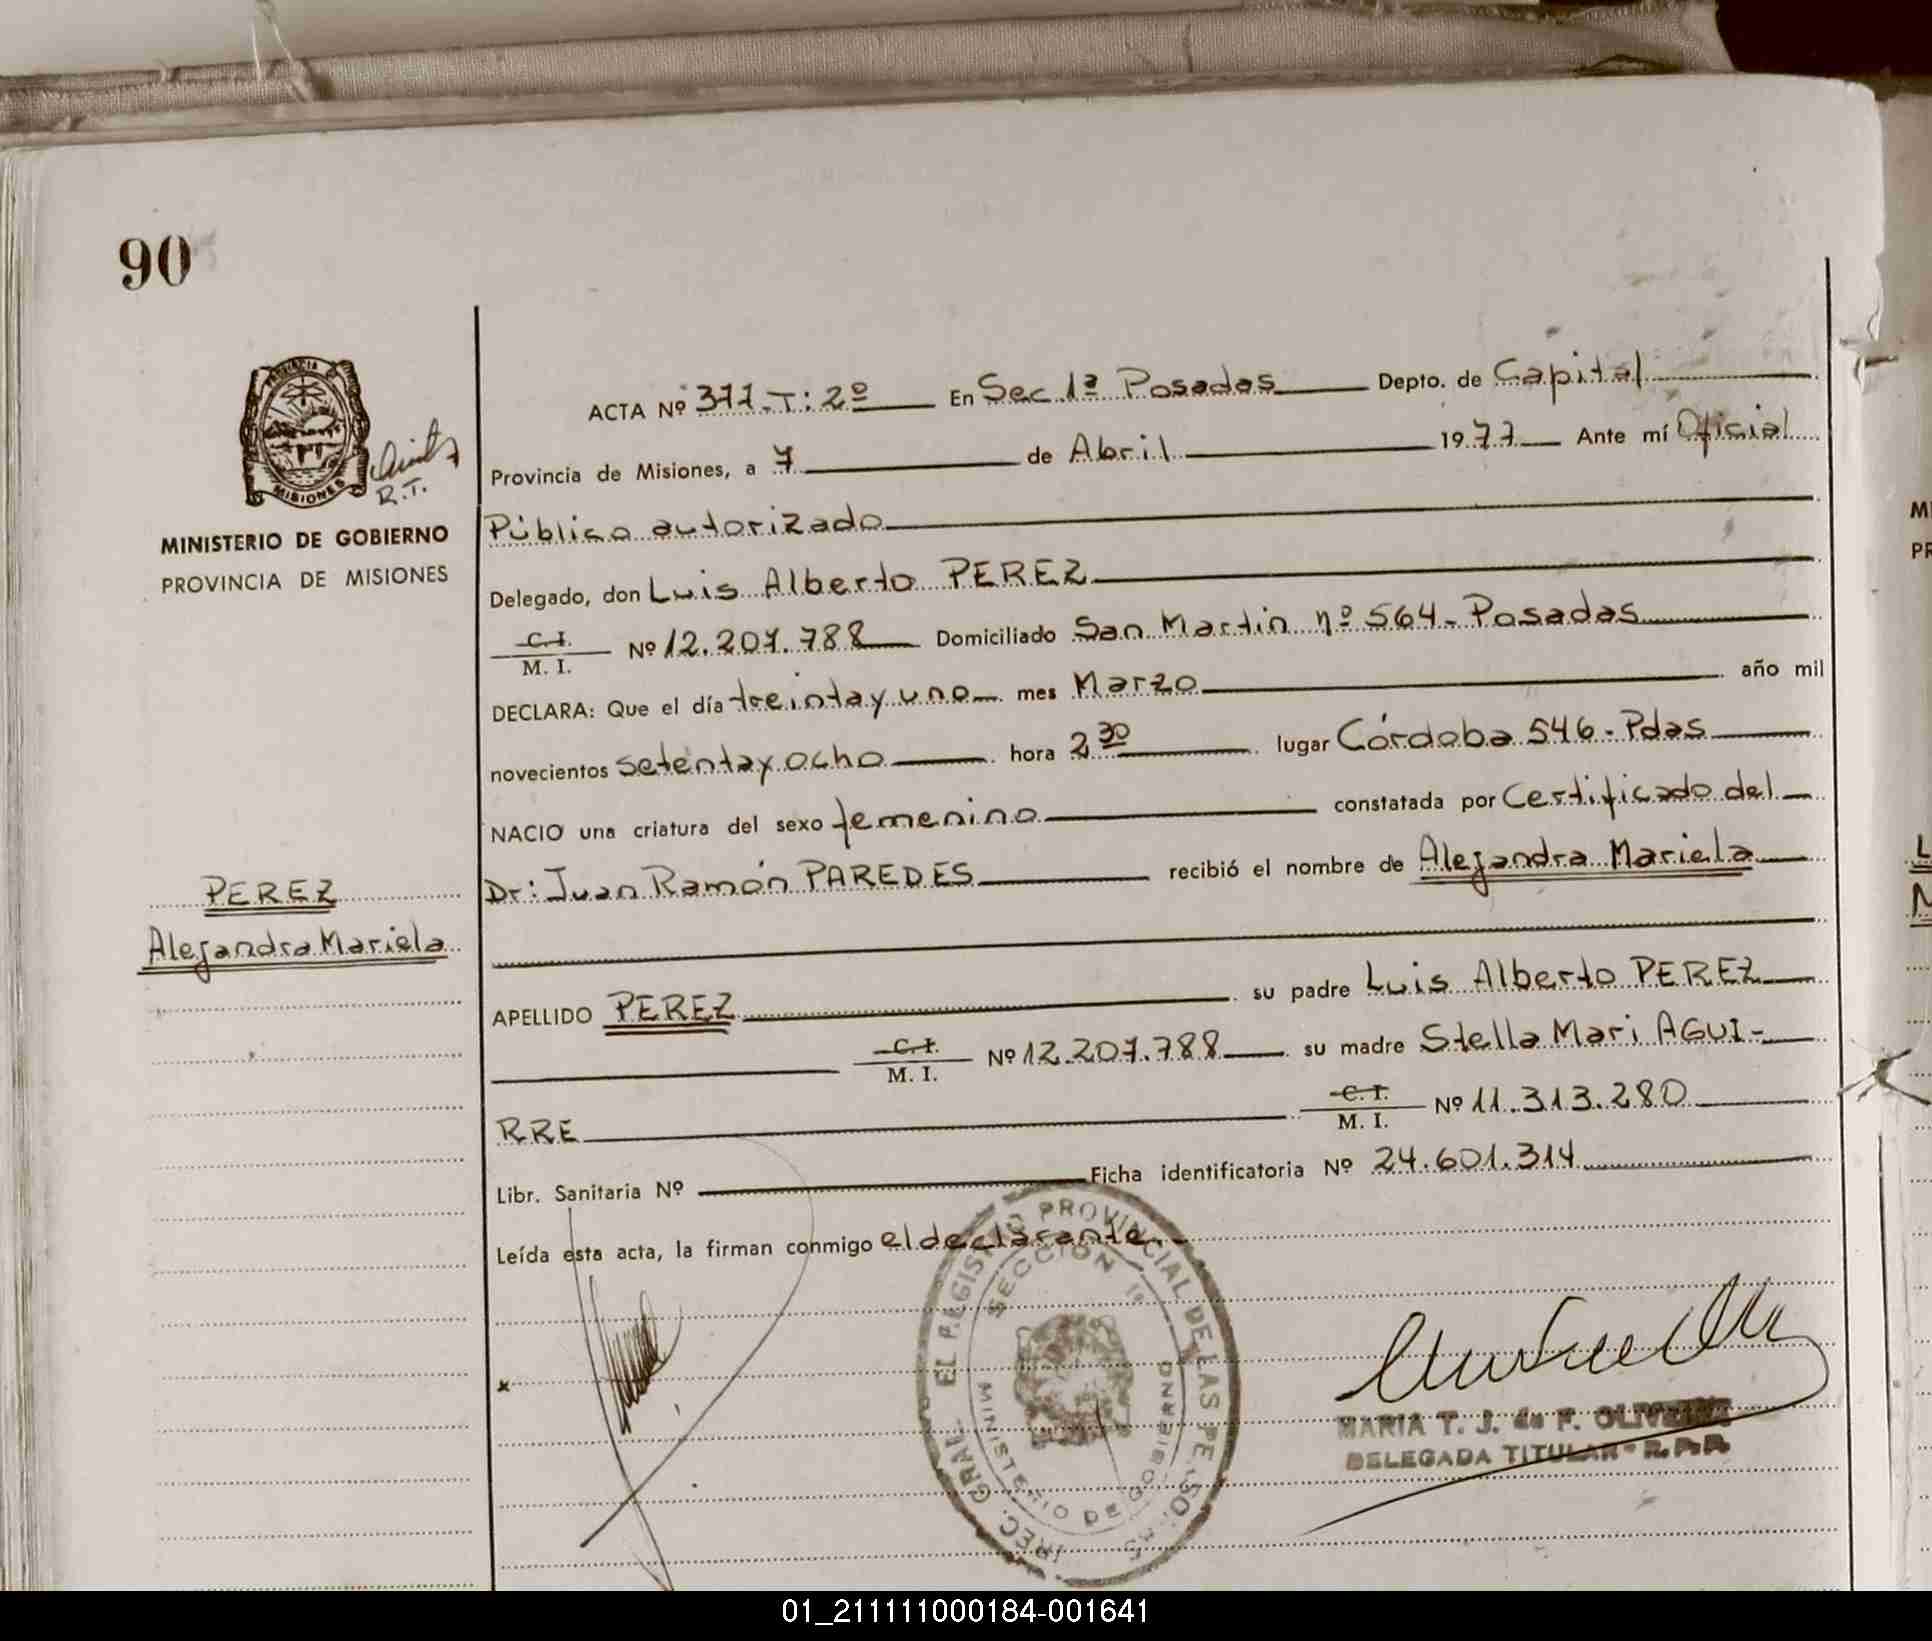 90
PROVINCIA DE
MISIONES
R.T.
MINISTERIO DE GOBIERNO
PROVINCIA DE MISIONES
ACTA Nº 377-T: 2º En Sec 1ª Posadas Depto. de Capital
Provincia de Misiones, a 7 de Abril 1977 Ante mí Oficial
Público autorizado
Delegado, don Luis Alberto PEREZ
C.I.
M. I. Nº 12.207.788 Domiciliado San Martin nº 564-Posadas
DECLARA: Que el día treinta y uno mes Marzo año mil
novecientos setenta y ocho hora 2 30 lugar Córdoba 546-Pdas
NACIO una criatura del sexo femenino constatada por Certificado del
Dr: Juan Ramón PAREDES recibió el nombre de Alejandra Mariela
PEREZ
Alejandra Mariela
APELLIDO PEREZ su padre Luis Alberto PEREZ
C.I.
M. I. Nº 12.207.788 su madre Stella Mari AGUI-
RRE C.I.
M. I. Nº 11.313.280
Libr. Sanitaria Nº Ficha identificatoria Nº 24.601.314
Leída esta acta, la firman conmigo el declarante.-
EL REGISTRO PROVINCIAL DE LAS PE
SECCION 1ª
MINISTERIO DE GOBIERNO
MARIA T. J. de F. OLIVEIRA
DELEGADA TITULAR - R.P.P.
01_211111000184-001641